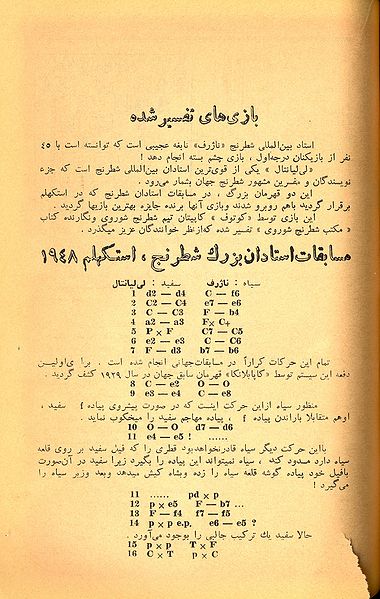 بازی‌های تفسیر شده
استاد بین‌المللی شطرنج «ناژرف» نابغه عجیبی است که توانسته است با ٤٥
نفر از بازیکنان درجه‌اول ، بازی چشم بسته انجام دهد !
«لی‌لیانتال» یکی از قوی‌ترین استادان بین‌المللی شطرنج است که جزء
نویسندگان و مفسرین مشهور شطرنج جهان بشمار می‌رود .
این دو قهرمان بزرگ ، در مسابقات استادان شطرنج که در استکهلم
برقرار گردید باهم روبرو شدند وبازی آنها برنده جایزه بهترین بازیها گردید .
این بازی توسط «کوتوف» کاپیتان تیم شطرنج شوروی ونگارنده کتاب
«مکتب شطرنج شوروی» تفسیر شده که‌ازنظر خوانندگان عزیز میگذرد .
مسابقات استادان بزرگ شطرنج ، استکهلم ١٩٤٨
سیاه : ناژرف سفید : لی‌لیانتال
1 d2 — d4 C — f6
2 C2 — C4 e7 — e6
3 C — C3 F — b4
4 a2 — a3 F x C+
5 P x F C7 — C5
6 e2 — e3 C — C6
7 F — d3 b7 — b6
تمام این حرکات کراراً در مسابقات‌جهانی انجام شده است . برای‌اولیـن
دفعه این سیستم توسط «کاپابلانکا» قهرمان سابق جهان در سال ١٩٢٩ کشف گردید .
8 C — e2 O — O
9 e3 — e4 C — e8
منظور سیاه ازاین حرکت اینست که در صورت پیشروی پیاده f سفید ،
اوهم متقابلا باراندن پیاده f ، پیاده مهاجم سفید را میخکوب نماید .
10 O — O d7 — d6
11 e4 — e5 ! ......
بااین حرکت دیگر سیاه قادرنخواهدبود قطری را که فیل سفید بر روی قلعه
سیاه دارد مسدود کند ، سیاه نمیتواند این پیاده را بگیرد زیرا سفید در آن‌صورت
بافیل خود پیاده گوشه قلعه سیاه را زده وبشاه کیش میدهد وبعد وزیر سیاه را
می‌گیرد !
11 ...... pd x p
12 p x e5 F — b7 ...
13 F — f4 f7 — f5
14 p x p e.p. e6 — e5 ?
حالا سفید یك ترکیب جالبی را بوجود می‌آورد .
15 p x p T x F
16 C x T p x C